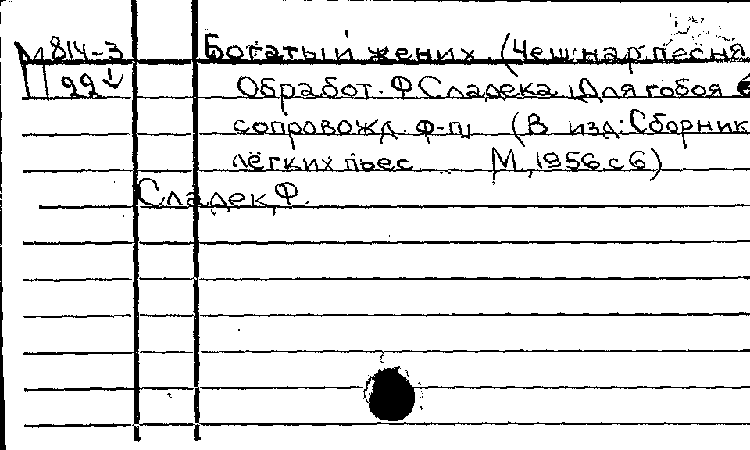 М 814-3 Богатый жених (Чеш нар песня
П 22 Обработ. Ф Сладека. Для гобоя с
сопровожд. ф-п (В изд: Сборник
лёгких пьес М, 1956. с 6)
Сладек, Ф.